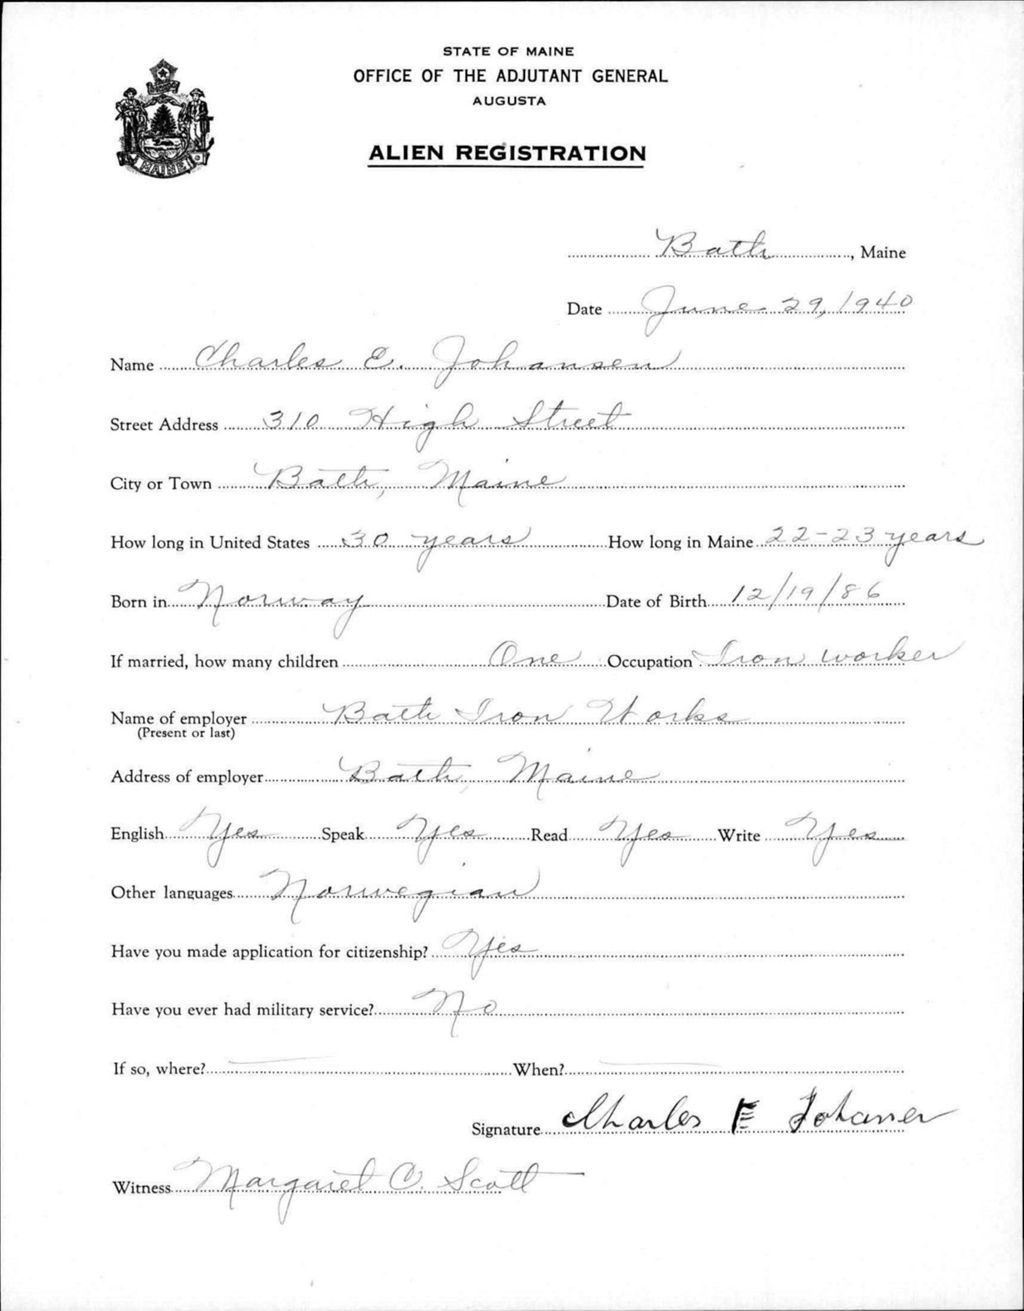 STATE OF MAINE
OFFICE OF THE ADJUTANT GENERAL
AUGUSTA
ALIEN REGISTRATION
MAINE
Bath, Maine
Date June 29, 1940
Name Charles E. Johansen
Street Address 310 High Street
City or Town Bath, Maine
How long in United States 30 years How long in Maine 22-23 years
Born in Norway Date of Birth 12/19/86
If married, how many children One Occupation Iron worker
Name of employer Bath Iron Works
(Present or last)
Address of employer Bath, Maine
English Yes Speak Yes Read Yes Write Yes
Other languages Norwegian
Have you made application for citizenship? Yes
Have you ever had military service? No
If so, where? When?
Signature Charles E Johansen
Witness Margaret C. Scott